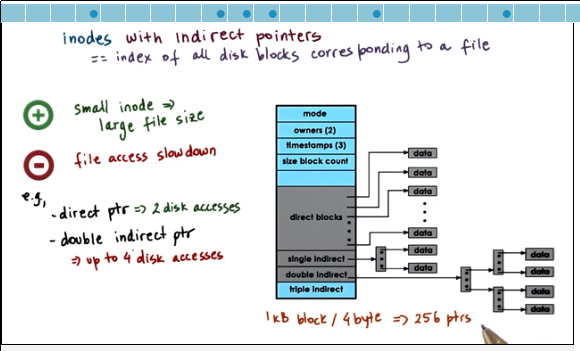 inodes with indirect pointers
== index of all disk blocks corresponding to a file
+ small inode ⇒
large file size
− file access slowdown
e.g,
- direct ptr ⇒ 2 disk accesses
- double indirect ptr
⇒ up to 4 disk accesses
mode
owners (2)
timestamps (3)
size block count
direct blocks
single indirect
double indirect
triple indirect
data
data
data
data
data
data
data
data
data
data
1kB block / 4 byte ⇒ 256 ptrs